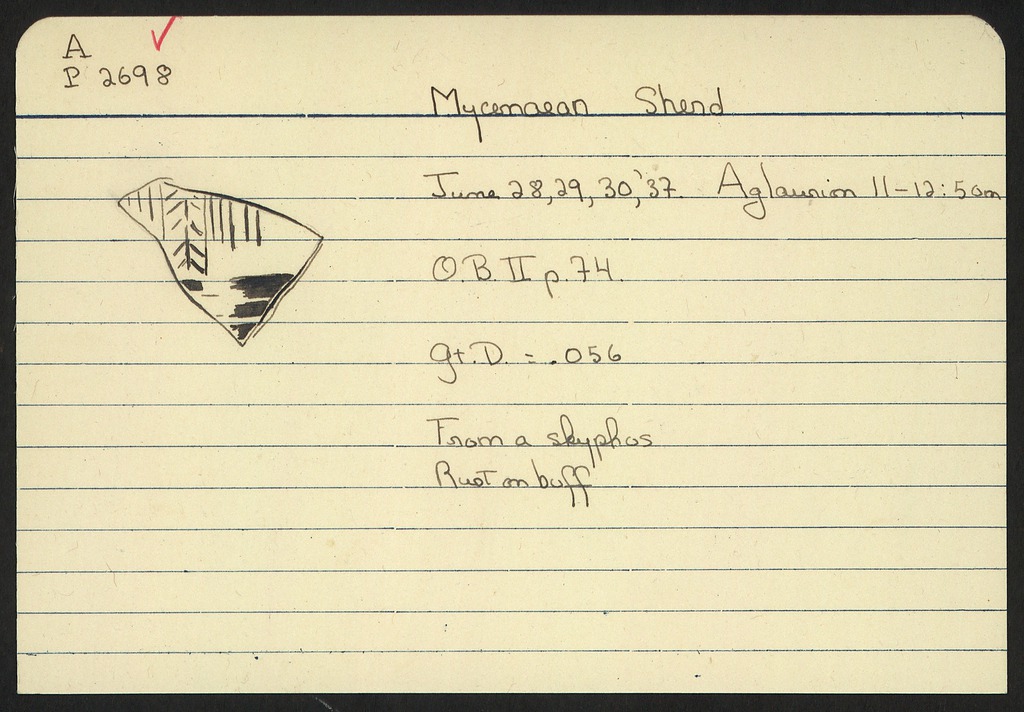 A
P 2698
Mycenaean Sherd
June 28, 29, 30, '37. Aglaurion 11-12:50m
O.B. II p. 74.
Gt. D. = .056
From a skyphos
Rust on buff